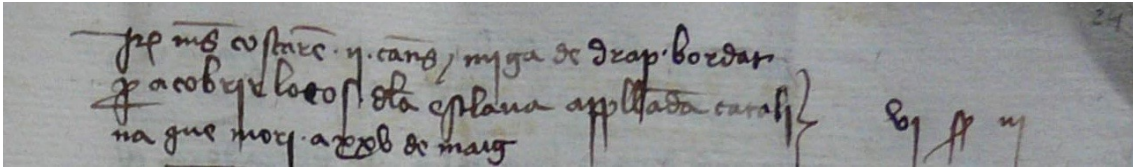 Itē mēs costarē · ii · canēs / miga de drap · bordat
ꝑ acobrir lo cos d̄la esclaua appllada catali
na que mori · a xxv de maig
vj ss iij
24